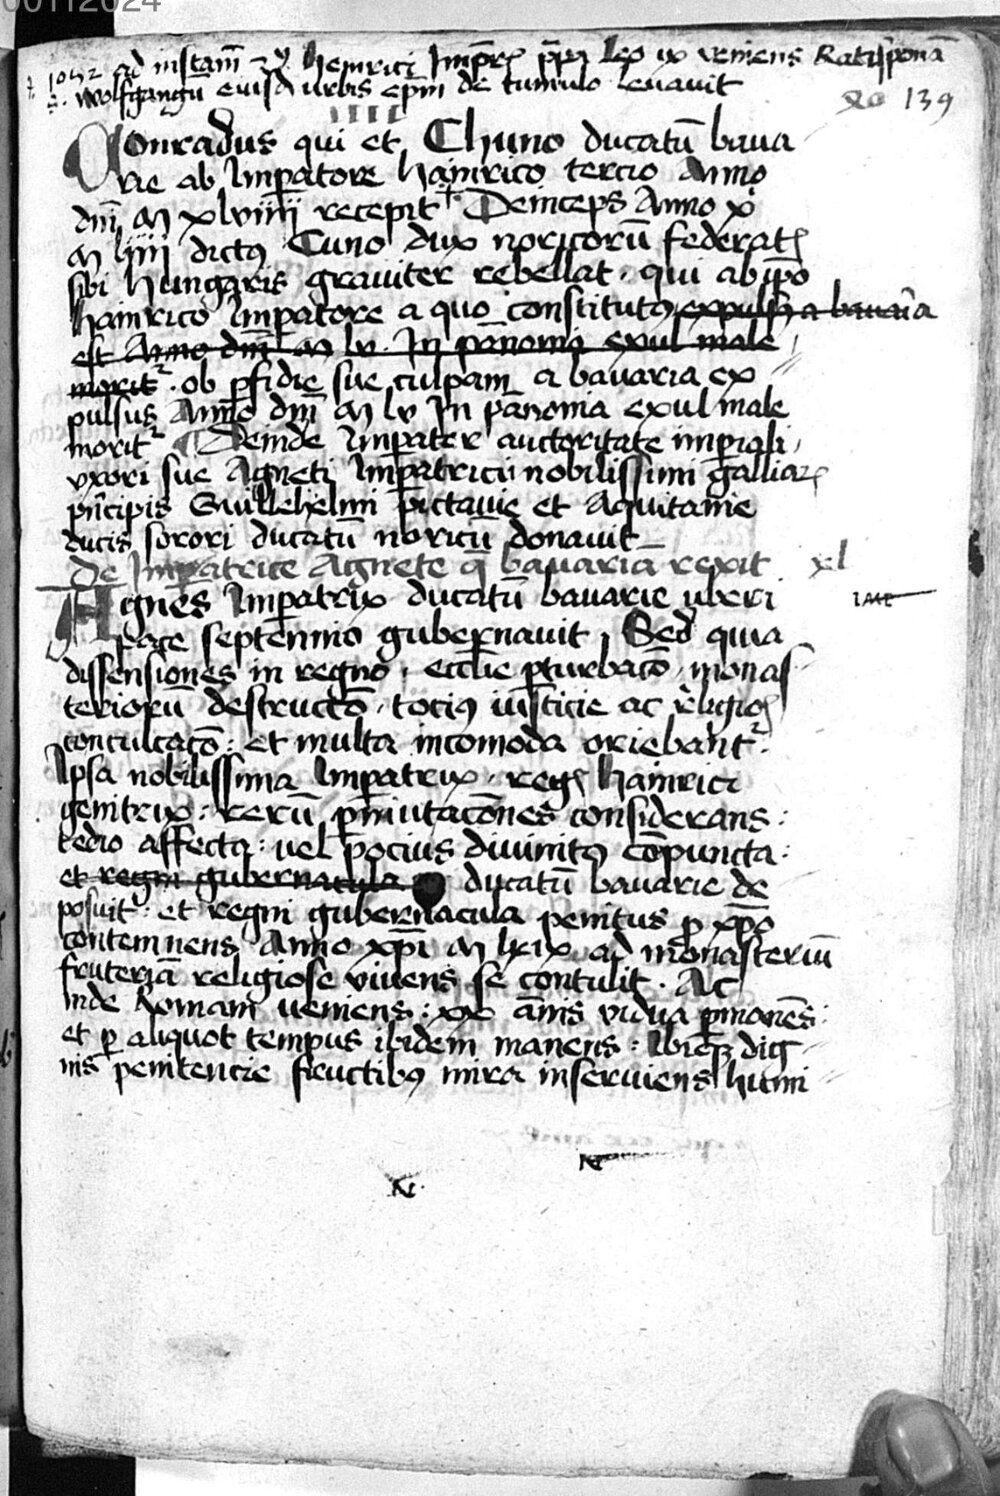 00112024
1052 ad instam̄ Heinrici Imp̄r̄ p̄p̄ Leo ix veniens Ratisponā
S. Wolfgangū eiusd̄ urbis ep̄m de tumulo levavit
139
IIII
Conradus qui et Chuno ducatū bava
rie ab Imp̄atore hainrico tercio Anno
dn̄i M xlviiii recepit Deinceps Anno xͦ
M liiii dictꝯ Cuno dux noricorū federatꝭ
sibi hungaris graviter rebellat · qui ab ip̄o
hainrico Imp̄atore a quo constitutꝯ expulsꝯ a bavaria
est Anno dn̄i M lv. In pānonia exul male
morit᷑ · ob ꝑfidie sue culpam a bavaria ex
pulsus Anno dn̄i M lv In pānonia exul male
morit᷑ Deinde Imp̄ator auctoritate imp̄iali
uxori sue Agneti Imp̄atrici nobilissimi galliarꝝ
pͥncipis Guillehelmi pictavie et Aquitanie
ducis sorori ducatū noricū donavit
De Imp̄atrice Agnete q̄ bavariā rexit xl
Agnes Imp̄atrix ducatū bavarie uberi
pace septennio gubernavit, Sed quia
dissensiones in regno, eccl̄ie ꝑturbacō, monas
teriorū destructō, tociꝯ iusticie ac religioꝭ
conculcacō: et multa incomoda oriebant᷑.
Ipsa nobilissima Imp̄atrix, regꝭ hainrici
genitrix: rerū ꝑmutacōnes considerans:
tedio affecta: vel pocius divinitꝯ cōpuncta:
et regni gubernacula ducatū bavarie de
posuit: et regni gubernacula penitus ꝓ xp̄o
contemnens Anno xp̄i M lxix ad monasteriū
fruteriā religiose vivens se contulit. Ac
inde Romam veniens: xx annis vidua ꝑmanēs:
et ꝑ aliquot tempus ibidem manens: Ibiqꝫ dig
nis penitencie fructibꝯ mira inserviens humi